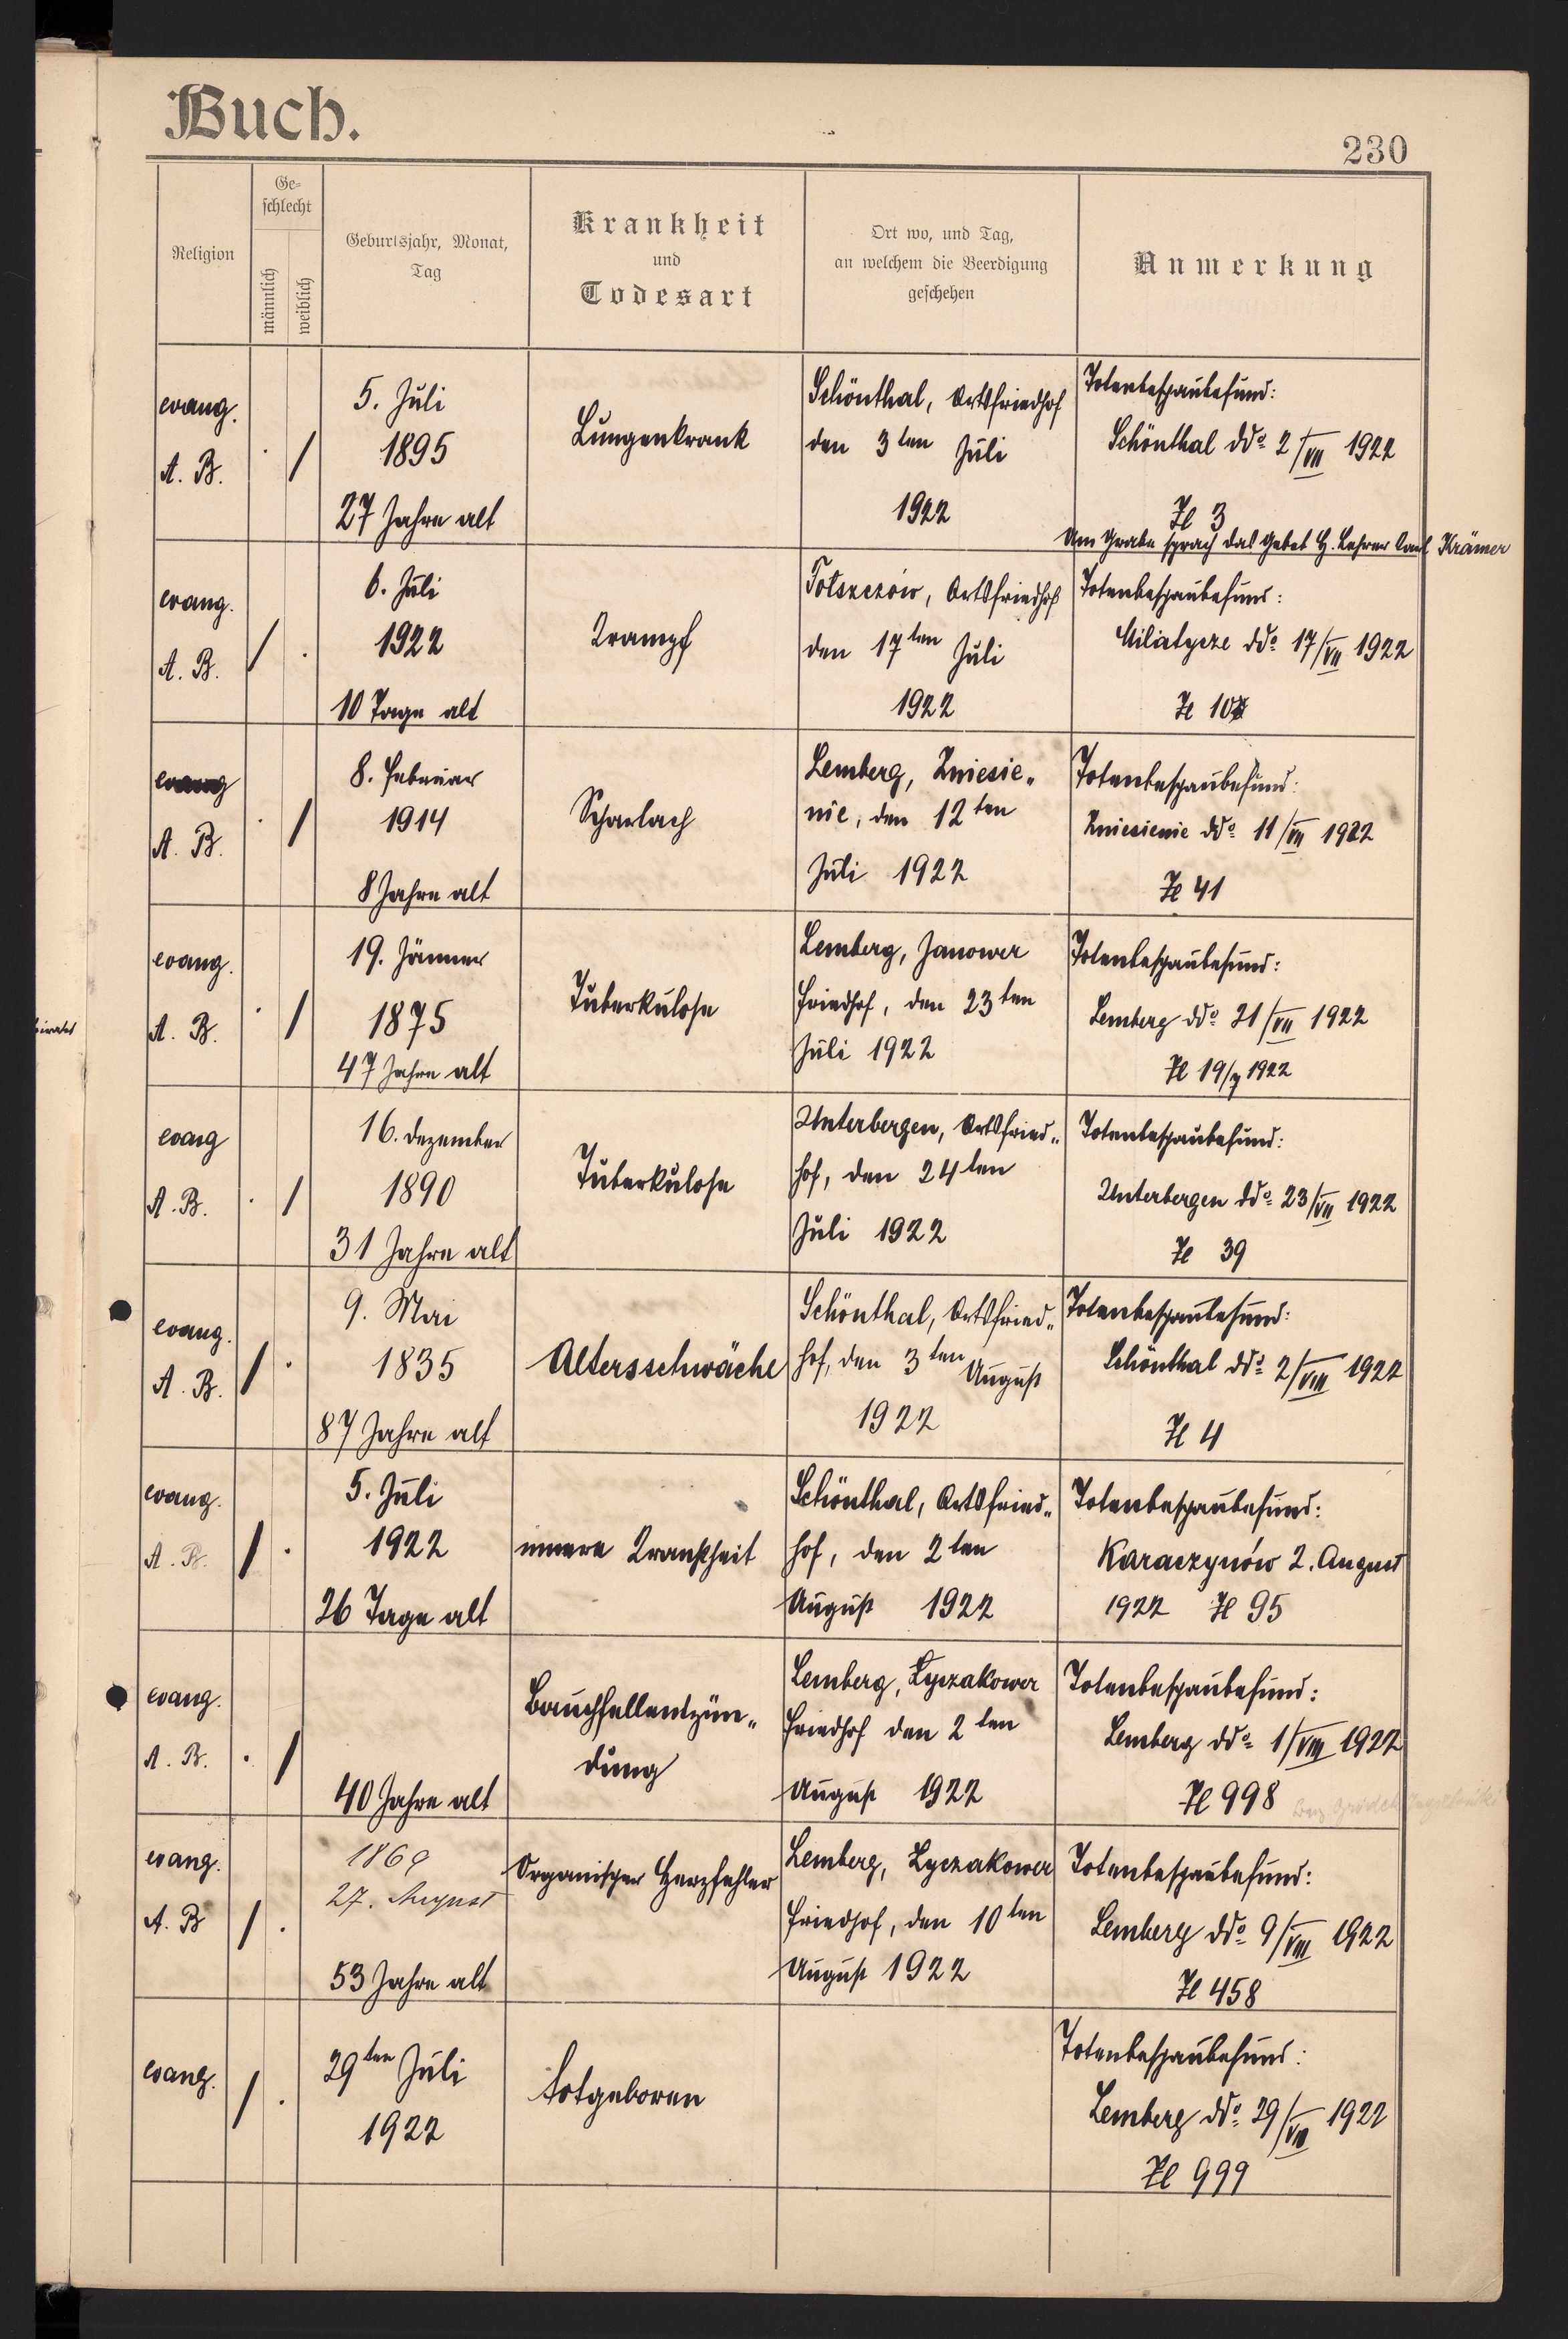 Buch.
230
Religion
Ge-
schlecht
männlich
weiblich
Geburtsjahr, Monat,
Tag
Krankheit
und
Todesart
Ort wo, und Tag,
an welchem die Beerdigung
geschehen
Anmerkung
evang.
A. B.
. /
5. Juli
1895
27 Jahre alt
Lungenkrank
Schönthal, Ortsfriedhof
den 3ten Juli
1922
Totenbeschaubefund:
Schönthal ddo 2/VII 1922
Zl 3
Am Grabe sprach das Gebet H. Lehrer Karl Krämer
evang.
A. B.
/ .
6. Juli
1922
10 Tage alt
Krampf
Tołszczów, Ortsfriedhof
den 17ten Juli
1922
Totenbeschaubefund:
Miliatycze ddo 17/VII 1922
Zl
evang
A. B.
. /
8. Februar
1914
8 Jahre alt
Scharlach
Lemberg, Zniesie„
nie, den 12ten
Juli 1922
Totenbeschaubefund:
Zniesienie ddo 11/VII 1922
Zl 41
evang.
A. B.
. /
19. Jänner
1875
47 Jahre alt
Tuberkulose
Lemberg, Janower
Friedhof, den 23ten
Juli 1922
Totenbeschaubefund:
Lemberg ddo 21/VII 1922
Zl 19/7 1922
evang
A. B.
. /
16. Dezember
1890
31 Jahre alt
Tuberkulose
Unterbergen, Ortsfried„
hof, den 24ten
Juli 1922
Totenbeschaubefund:
Unterbergen ddo 23/VII 1922
Zl 39
evang.
A. B.
/ .
9. Mai
1835
87 Jahre alt
Altersschwäche
Schönthal, Ortsfried„
hof, den 3ten August
1922
Totenbeschaubefund:
Schönthal ddo 2/VIII 1922
Zl 4
evang.
A. B.
/ .
5. Juli
1922
26 Tage alt
innere Krankheit
Schönthal, Ortsfried„
hof, den 2ten
August 1922
Totenbeschaubefund:
Karaczynów 2. August
1922 Zl 95
evang.
A. B.
. /
40 Jahre alt
Bauchfellentzün„
dung
Lemberg, Łyczakower
Friedhof den 2ten
August 1922
Totenbeschaubefund:
Lemberg ddo 1/VIII 1922
Zl 998
evang.
A. B
/ .
1869
27. August
53 Jahre alt
Organischer Herzfehler
Lemberg, Łyczakower
Friedhof, den 10ten
August 1922
Totenbeschaubefund:
Lemberg ddo 9/VIII 1922
Zl 458
evang.
/ .
29ten Juli
1922
totgeboren
Totenbeschaubefund:
Lemberg ddo 29/VII 1922
Zl 999